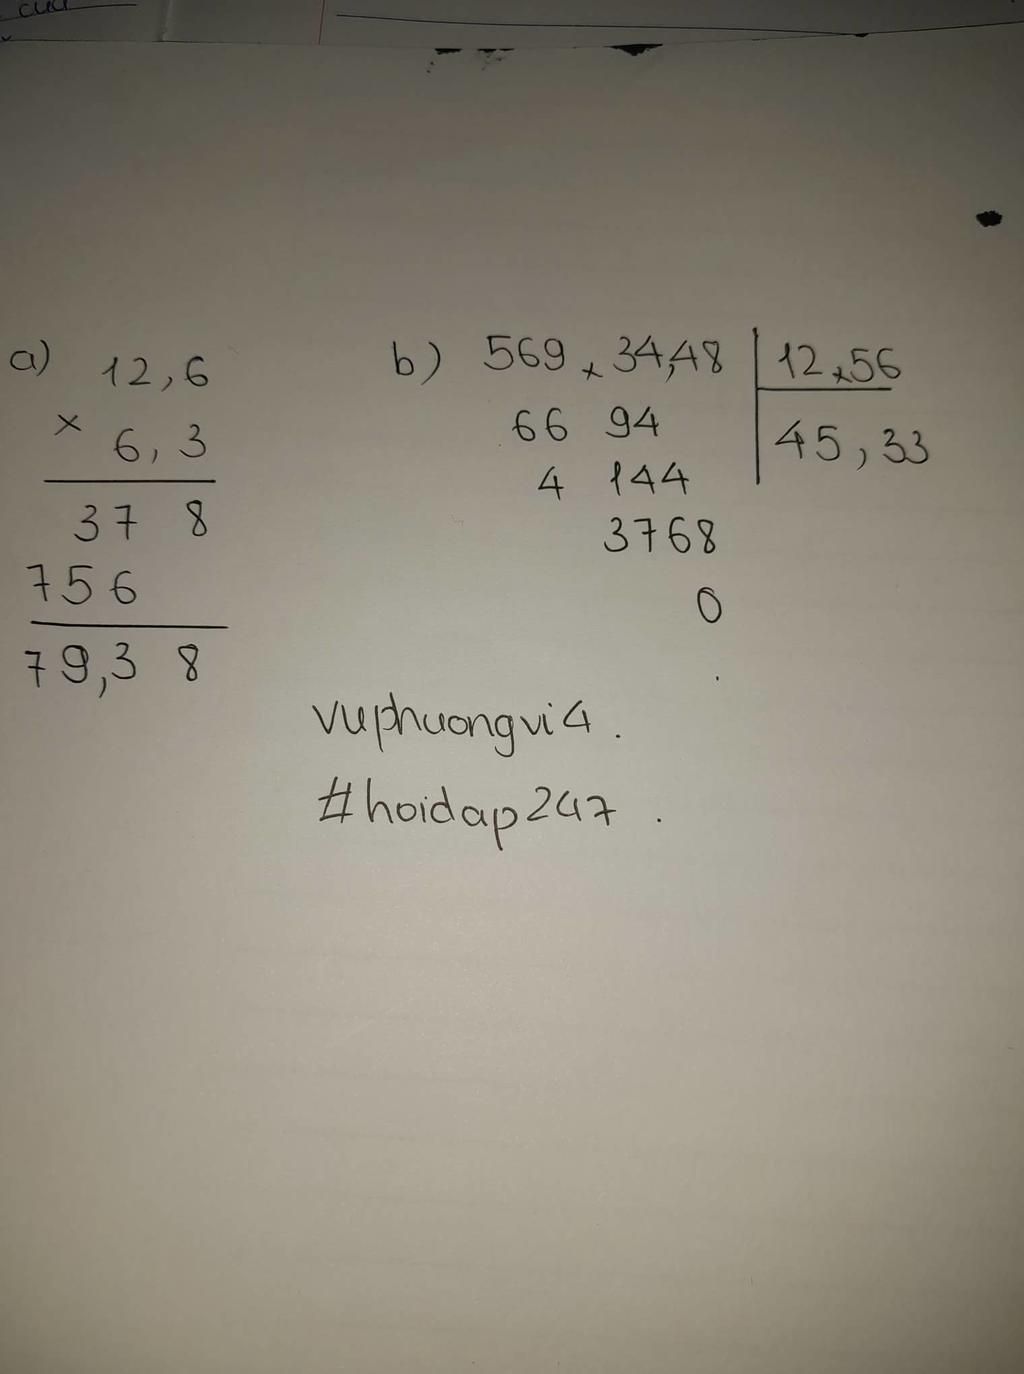 cuu
a) 12,6
× 6,3
37 8
756
79,3 8
b) 569 × 34,48 | 12 × 56
66 94 | 45,33
4 144
3768
0
vuphuongvi4.
#hoidap247.